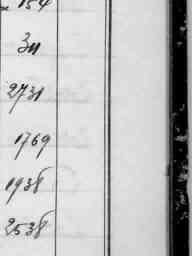 154
311
2731
1769
1938
2538